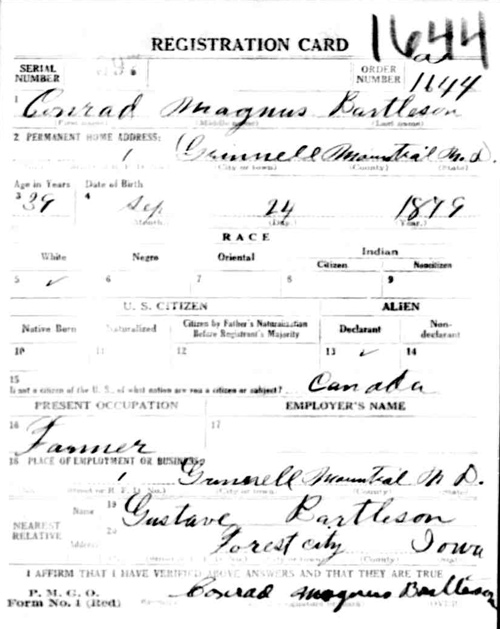 1644
REGISTRATION CARD
SERIAL NUMBER
ORDER NUMBER 1644
1 Conrad Magnus Bartleson
(First name) (Middle name) (Last name)
2 PERMANENT HOME ADDRESS:
1 Grinnell Mountrail N.D.
(City or town) (County) (State)
Age in Years Date of Birth
3 39 4 Sep 24 1879
Month. (Day.) (Year.)
RACE
White Negro Oriental Indian
Citizen Noncitizen
5 ✓ 6 7 8 9
U. S. CITIZEN ALIEN
Native Born Naturalized Citizen by Father's Naturalization Before Registrant's Majority Declarant Non-declarant
10 11 12 13 ✓ 14
15
If not a citizen of the U. S., of what nation are you a citizen or subject? Canada
PRESENT OCCUPATION EMPLOYER'S NAME
16 Farmer 17
18 PLACE OF EMPLOYMENT OR BUSINESS:
1 Grinnell Mountrail N D.
(City or town) (County) (State)
NEAREST RELATIVE
Name 19 Gustave Bartleson
Address 20 Forest city Iowa
(City or town) (County) (State)
I AFFIRM THAT I HAVE VERIFIED ABOVE ANSWERS AND THAT THEY ARE TRUE
P. M. G. O.
Form No. 1 (Red) Conrad Magnus Bartleson
(OVER)